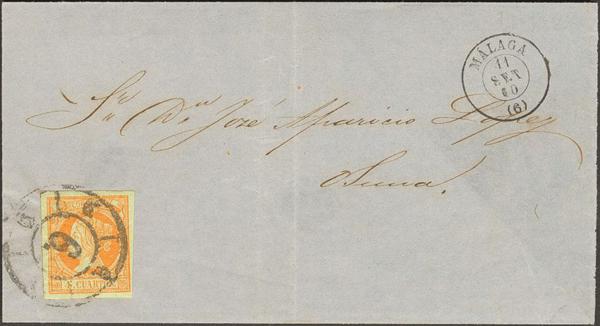 MÁLAGA
11
SET
60
(6)
Sr. Dn. José Aparicio López
Osuna.
6
4 CUARTOS